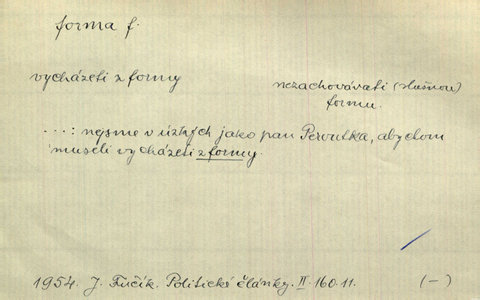 forma f.
vycházeti z formy
nezachovávati (slušnou)
formu.
...: nejsme v úzkých jako pan Peroutka, abychom
museli vycházeti z formy.
1954. J. Fučík. Politické články. II. 160.11. (-)